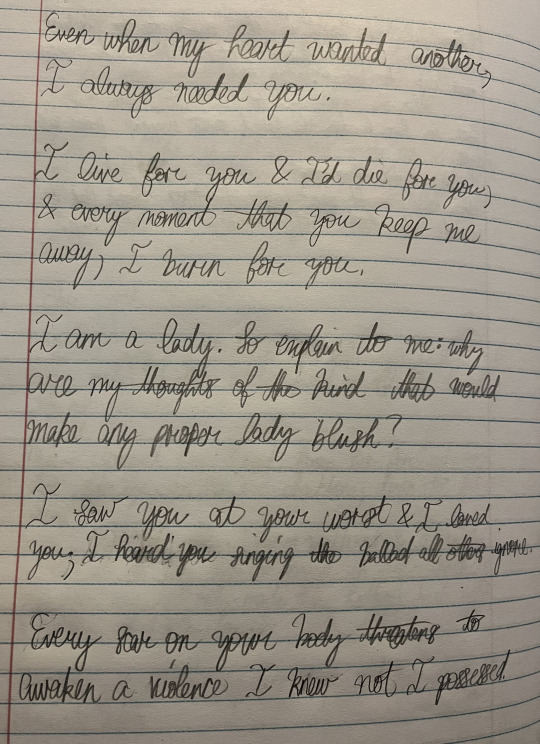 Even when my heart wanted another,
I always needed you.
I live for you & I'd die for you,
& every moment that you keep me
away, I burn for you.
I am a lady. So explain to me: why
are my thoughts of the kind that would
make any proper lady blush?
I saw you at your worst & I loved
you; I heard you singing the ballad all others ignore.
Every scar on your body threatens to
awaken a violence I knew not I possessed.